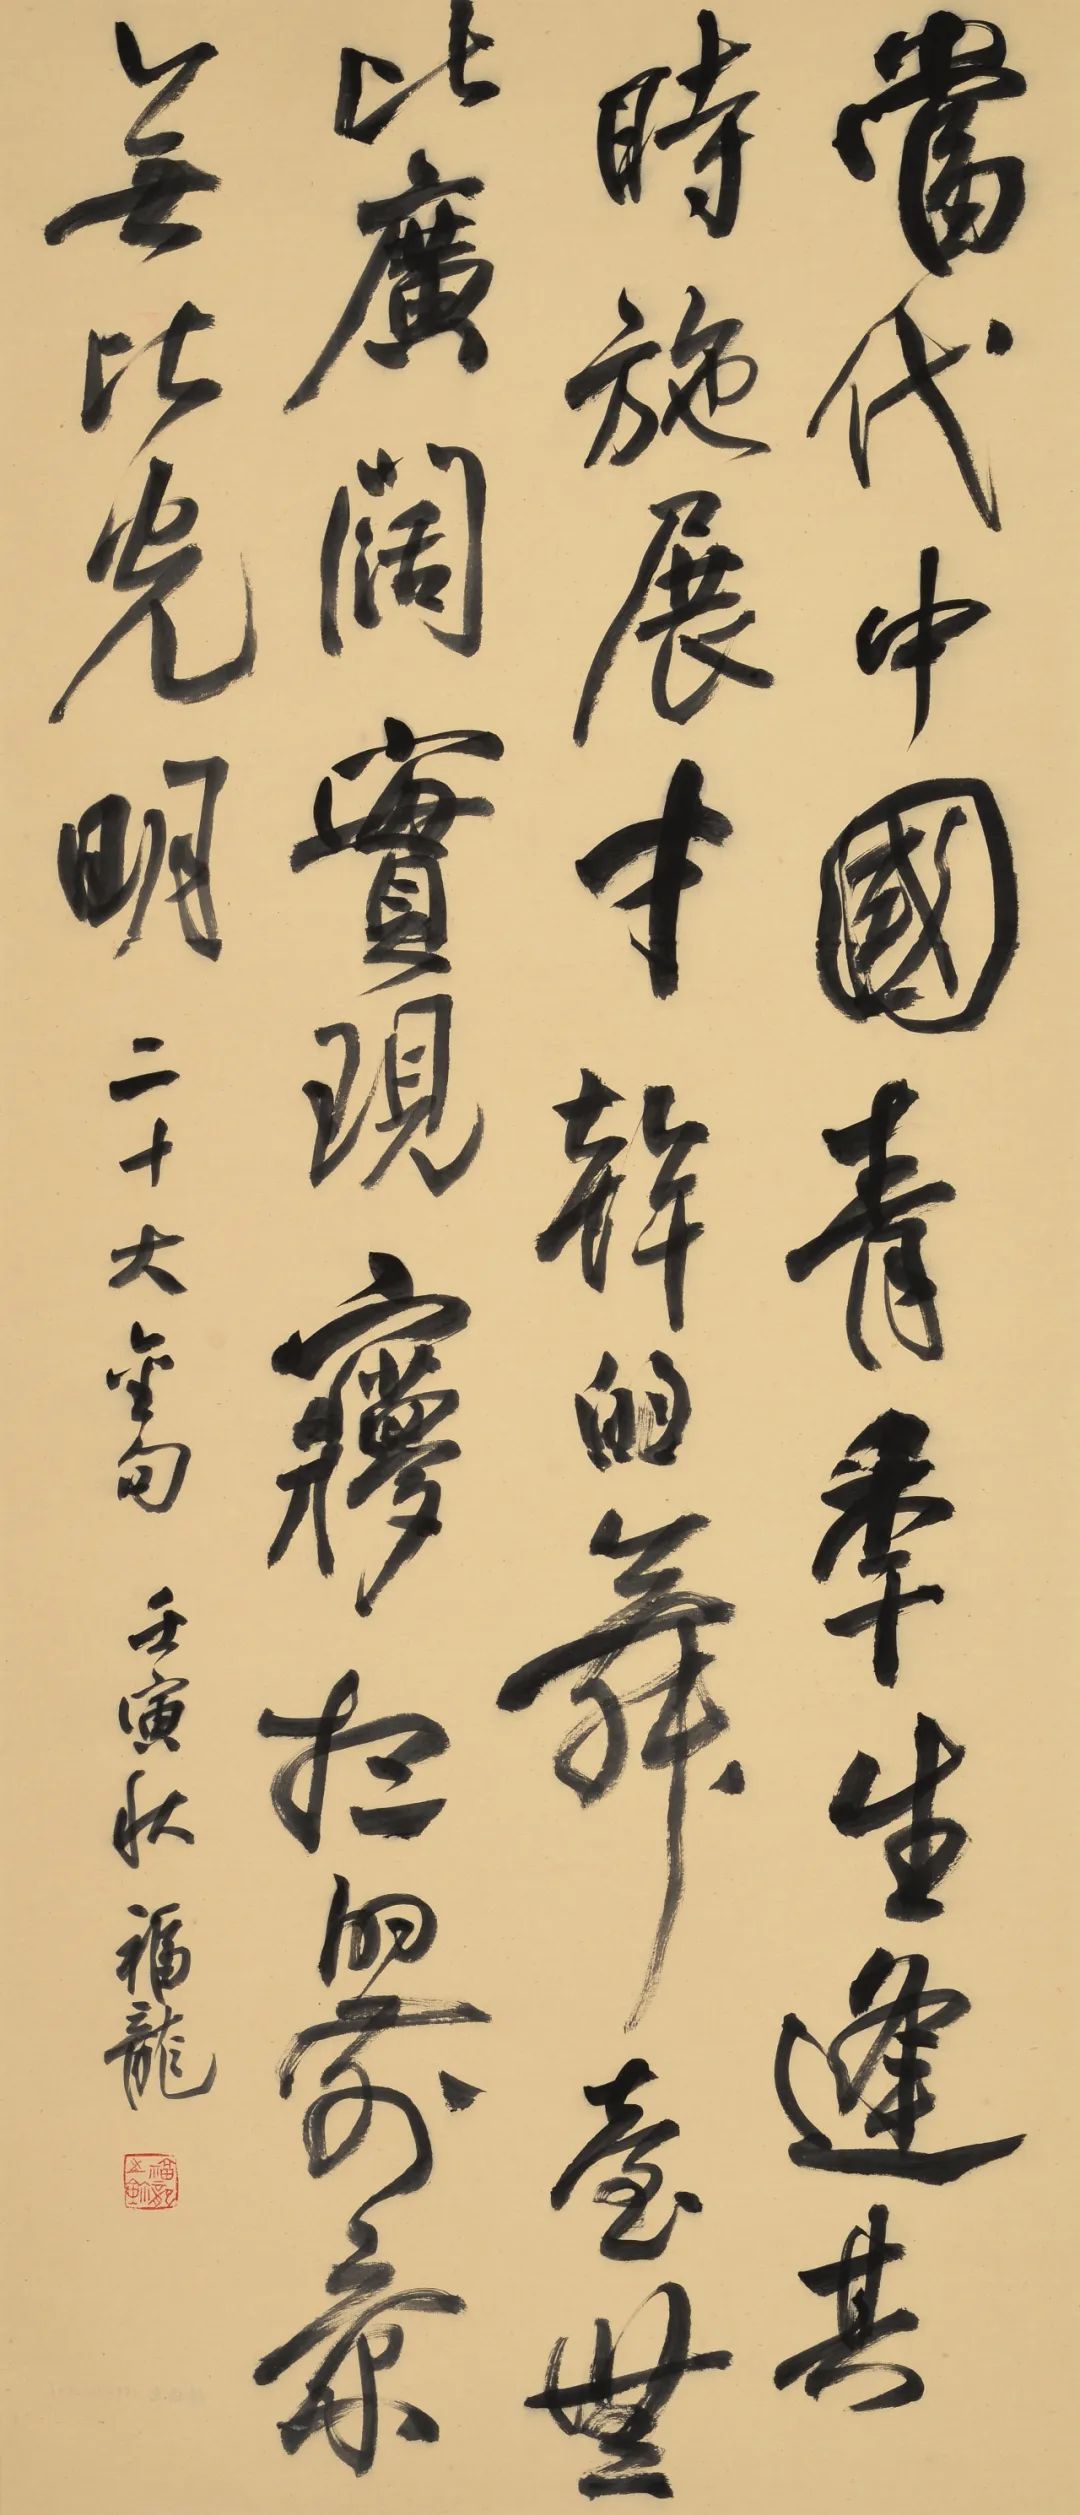 當代中國青年生逢其
時施展才幹的舞臺無
比廣闊實現夢想的前景
無比光明
二十大金句 壬寅秋 福龍